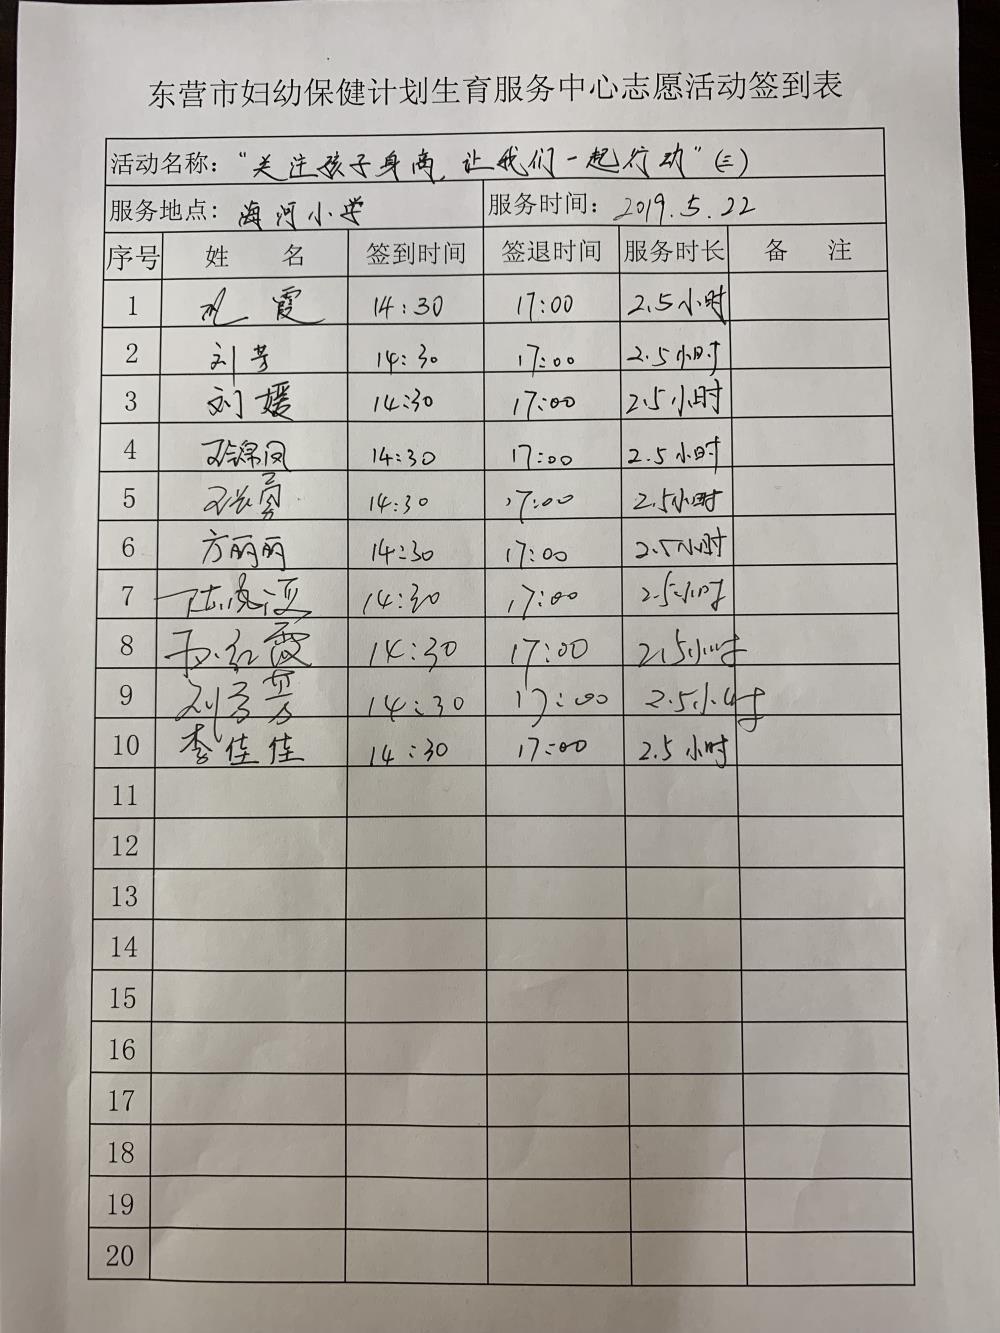 东营市妇幼保健计划生育服务中心志愿活动签到表
活动名称：“关注孩子身高，让我们一起行动”(三)
服务地点：海河小学 服务时间：2019.5.22
序号 姓 名 签到时间 签退时间 服务时长 备 注
1 霞 14:30 17:00 2.5小时
2 刘芳 14:30 17:00 2.5小时
3 刘媛 14:30 17:00 2.5小时
4 14:30 17:00 2.5小时
5 14:30 17:00 2.5小时
6 方丽丽 14:30 17:00 2.5小时
7 14:30 17:00 2.5小时
8 红霞 14:30 17:00 2.5小时
9 14:30 17:00 2.5小时
10 李佳佳 14:30 17:00 2.5小时
11
12
13
14
15
16
17
18
19
20